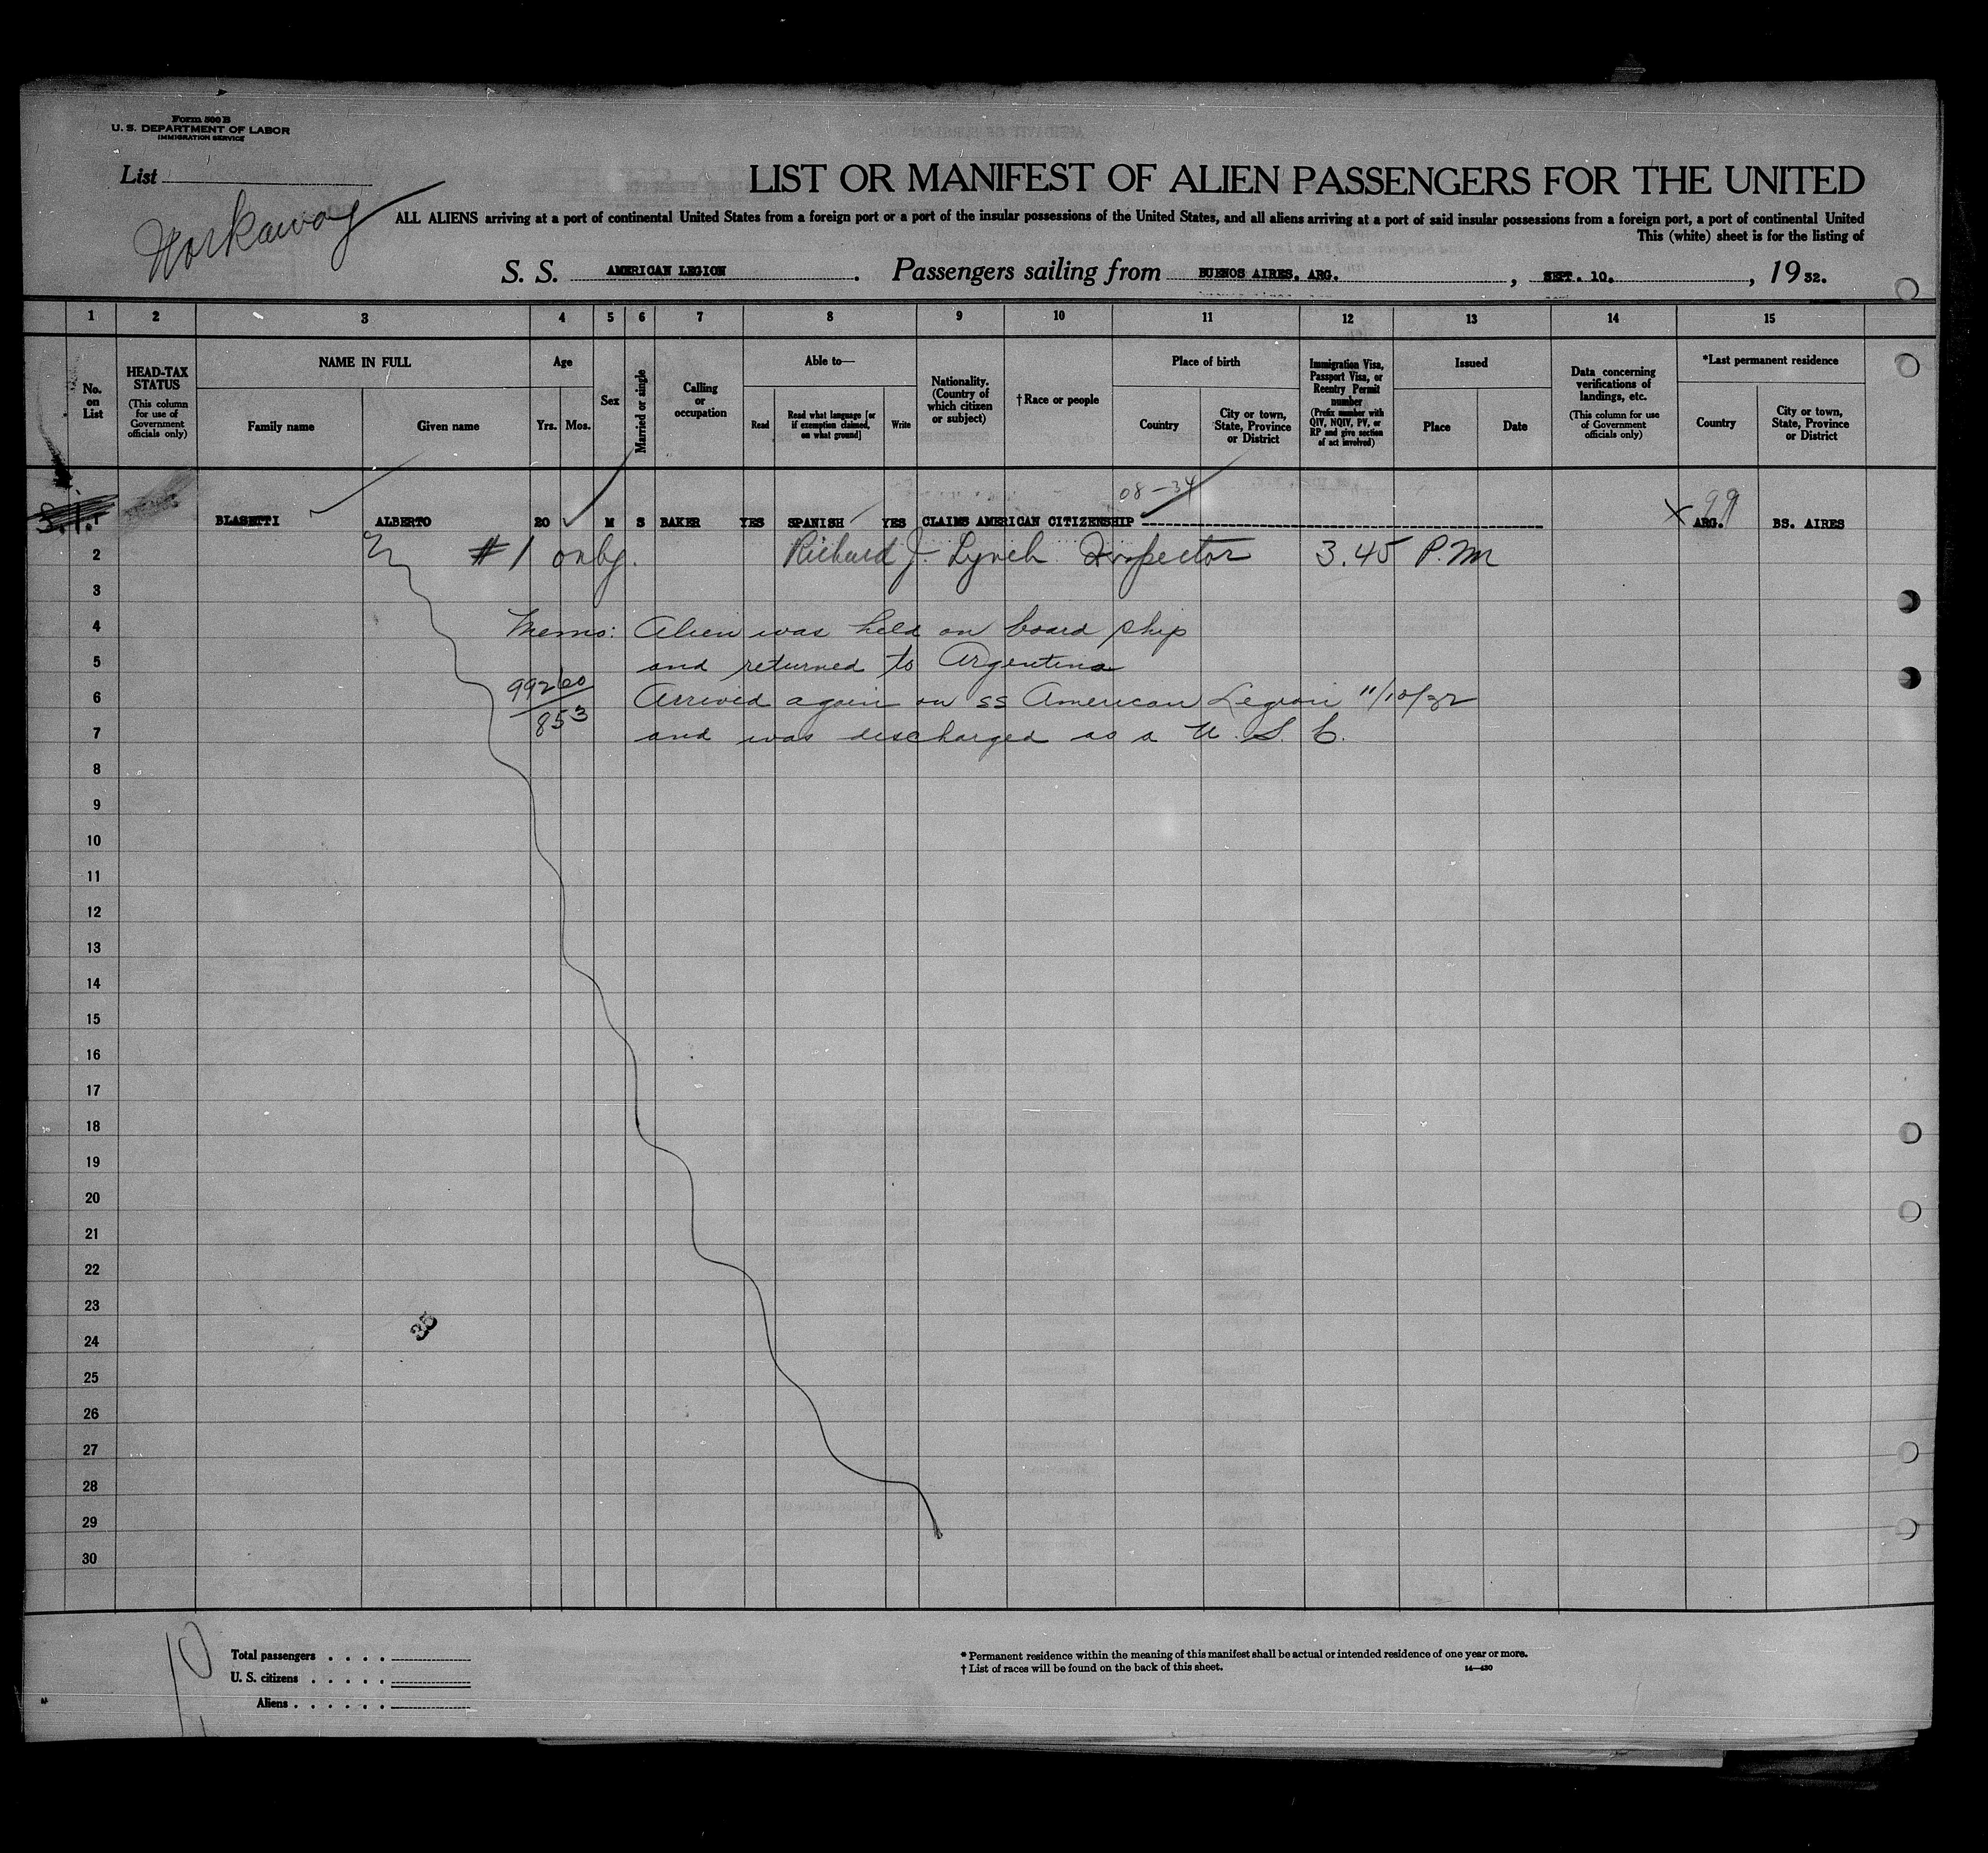 Form 500 B
U. S. DEPARTMENT OF LABOR
IMMIGRATION SERVICE
List
Workaway
LIST OR MANIFEST OF ALIEN PASSENGERS FOR THE UNITED
ALL ALIENS arriving at a port of continental United States from a foreign port or a port of the insular possessions of the United States, and all aliens arriving at a port of said insular possessions from a foreign port, a port of continental United
This (white) sheet is for the listing of
S. S. AMERICAN LEGION. Passengers sailing from BUENOS AIRES. ARG., SEPT. 10., 1932.
1 2 3 4 5 6 7 8 9 10 11 12 13 14 15
No. on List
HEAD-TAX STATUS (This column for use of Government officials only)
NAME IN FULL
Family name Given name
Age
Yrs. Mos.
Sex
Married or single
Calling or occupation
Able to—
Read
Read what language [or if exemption claimed, on what ground]
Write
Nationality. (Country of which citizen or subject)
† Race or people
Place of birth
Country
City or town, State, Province or District
Immigration Visa, Passport Visa, or Reentry Permit number (Prefix number with QIV, NQIV, PV, or RP and give section of act involved)
Issued
Place Date
Data concerning verifications of landings, etc. (This column for use of Government officials only)
*Last permanent residence
Country
City or town, State, Province or District
08-34
99
S.I. 1 BLASETTI ALBERTO 20 M S BAKER YES SPANISH YES CLAIMS AMERICAN CITIZENSHIP X ARG. BS. AIRES
2 #1 only. Richard J. Lynch Inspector 3.45 P.M
3
4 Memo: Alien was held on board ship
5 and returned to Argentina
6 99260/853 Arrived again on SS American Legion 11/10/32
7 and was discharged as a U.S.C.
8
9
10
11
12
13
14
15
16
17
18
19
20
21
22
23
35
24
25
26
27
28
29
30
10
Total passengers
U. S. citizens
Aliens
* Permanent residence within the meaning of this manifest shall be actual or intended residence of one year or more.
† List of races will be found on the back of this sheet.
14—430